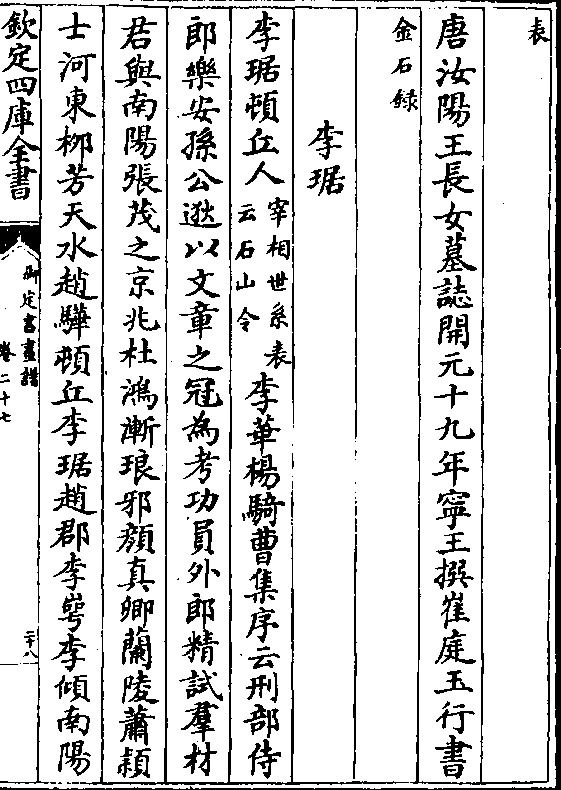 表
唐汝陽王長女墓誌開元十九年寧王撰崔庭玉行書
金石録
李琚
李琚頓丘人宰相世系表云石山令李華楊騎曹集序云刑部侍
郎樂安孫公逖以文章之冠為考功員外郎精試羣材
君與南陽張茂之京兆杜鴻漸琅邪顔真卿蘭陵蕭穎
士河東栁芳天水趙驊頓丘李琚趙郡李崿李傾南陽
欽定四庫全書
御定書畫譜
卷二十七
二十八